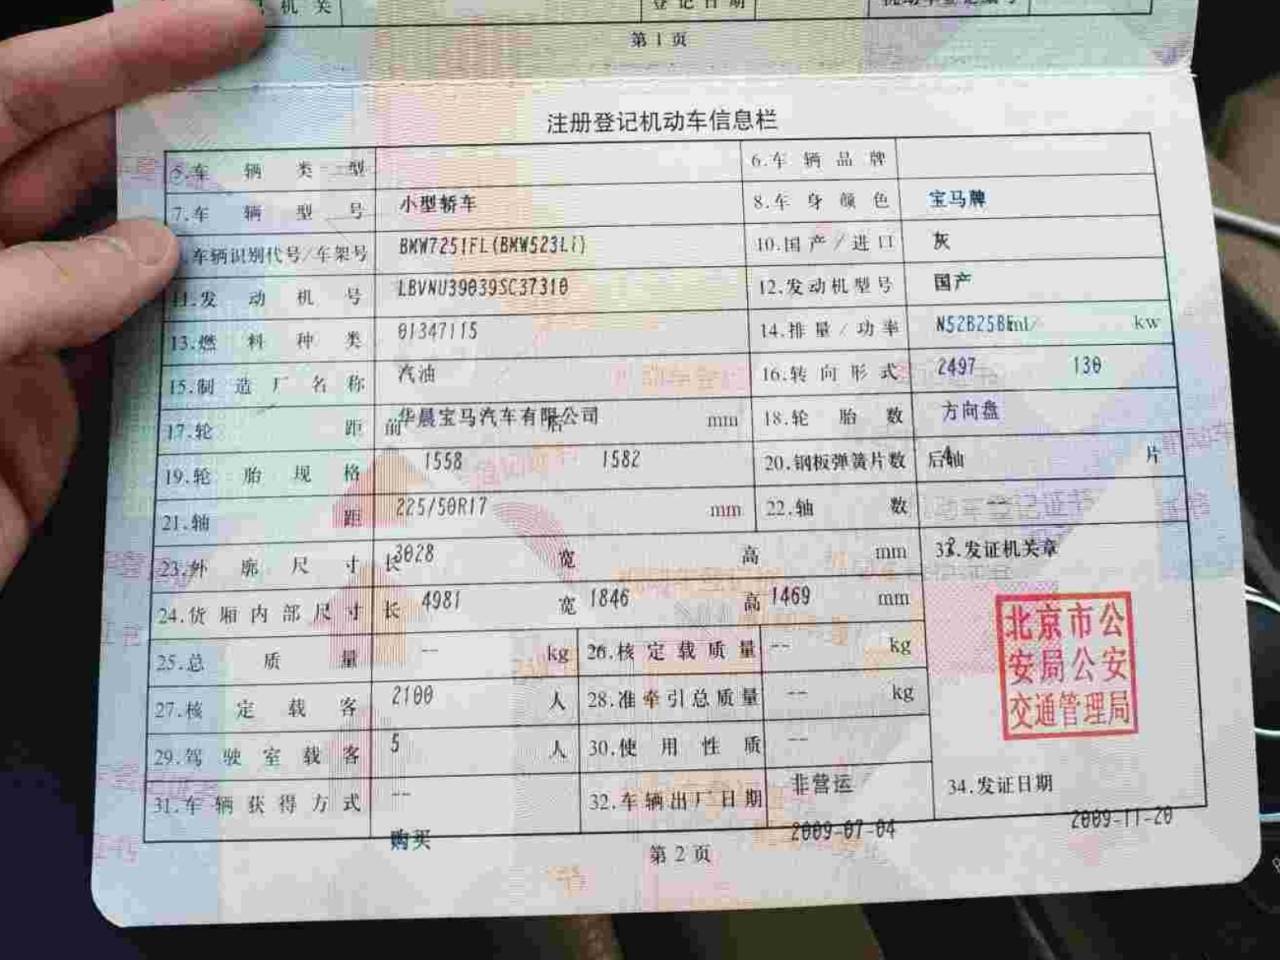 机关
登记日期
第 1 页
注册登记机动车信息栏
5.车辆类型 6.车辆品牌
7.车辆型号 小型轿车 8.车身颜色 宝马牌
车辆识别代号/车架号 BMW7251FL(BMW523Li) 10.国产/进口 灰
11.发动机号 LBVNU39039SC37310 12.发动机型号 国产
13.燃料种类 01347115 14.排量/功率 N52B25BF ml/ kw
15.制造厂名称 汽油 16.转向形式 2497 130
17.轮距 前 华晨宝马汽车有限公司 后 mm 18.轮胎数 方向盘
19.轮胎规格 1558 1582 20.钢板弹簧片数 后轴 4 片
21.轴距 225/50R17 mm 22.轴数 --
23.外廓尺寸 长 3028 宽 高 mm 33.发证机关章
24.货厢内部尺寸 长 4981 宽 1846 高 1469 mm
25.总质量 -- kg 26.核定载质量 -- kg
27.核定载客 2100 人 28.准牵引总质量 -- kg
29.驾驶室载客 5 人 30.使用性质 --
31.车辆获得方式 -- 32.车辆出厂日期 非营运 34.发证日期
购买 2009-07-04 2009-11-20
北京市公
安局公安
交通管理局
第 2 页